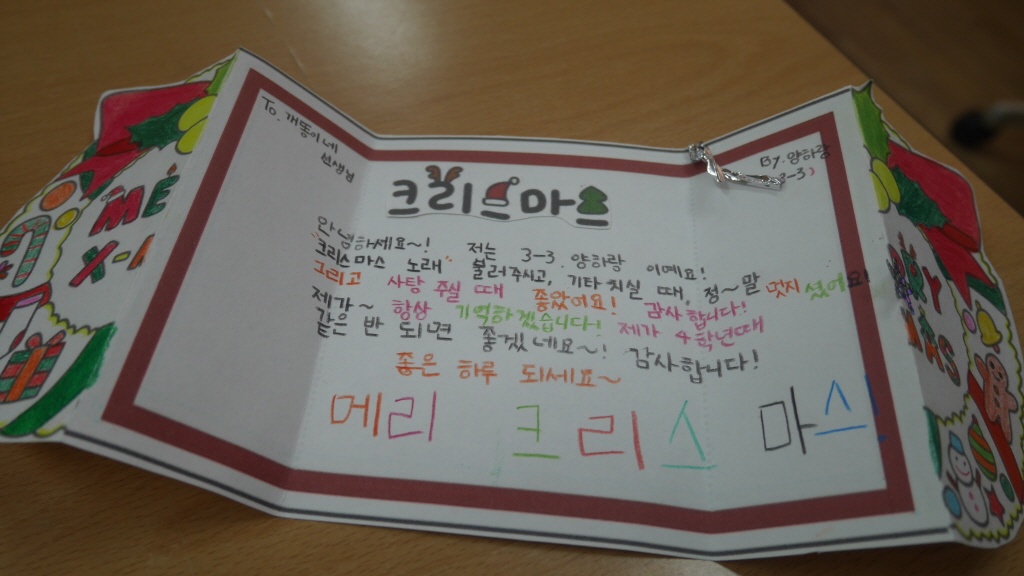 To. 개똥이네
선생님
By. 양하랑
3-3)
크리스마스
안녕하세요~! 저는 3-3 양하랑 이예요!
크리스마스 노래 불러주시고, 기타 치실 때, 정~말 멋지셨어요!
그리고 사탕 주실 때 좋았어요! 감사합니다!
제가~ 항상 기억하겠습니다! 제가 4학년때
같은 반 되면 좋겠네요~! 감사합니다!
좋은 하루 되세요~
메리 크리스마스!
ME
X-
PY
AS